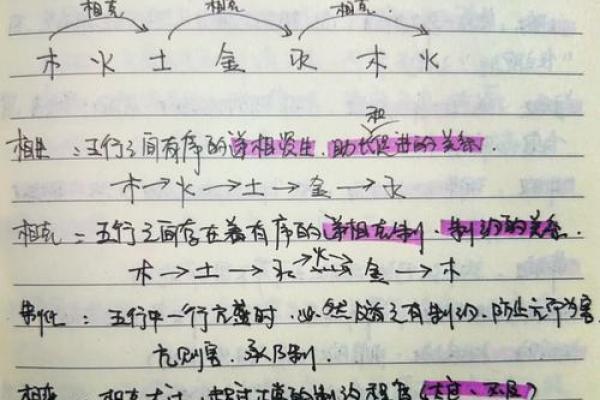 相克 相克 相克
木 火 土 金 水 木 火
和
相生：五行之间有序的递相资生、助长促进的关系.
木→火→土→金→水
相克：五行之间存在着有序的递相克制、制约的关系.
木→土→水→火→金→木
制化：五行中一行亢盛时，必然随之有制约，防止亢而为害
亢则害 承乃制.
相乘：相克太过，超过正常的制约程度（太过、不及）